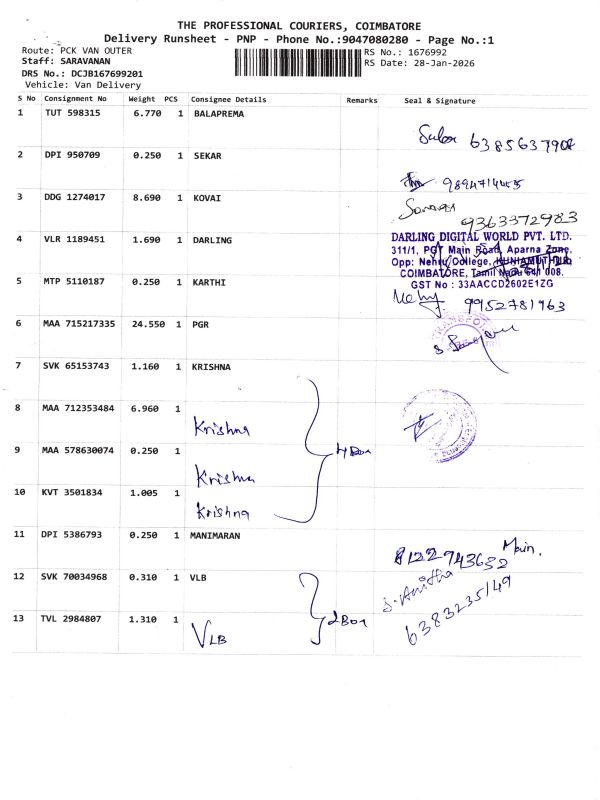 THE PROFESSIONAL COURIERS, COIMBATORE
Delivery Runsheet - PNP - Phone No.:9047080280 - Page No.:1
Route: PCK VAN OUTER
RS No.: 1676992
Staff: SARAVANAN
RS Date: 28-Jan-2026
DRS No.: DCJB167699201
Vehicle: Van Delivery
S No Consignment No Weight PCS Consignee Details Remarks Seal & Signature
1 TUT 598315 6.770 1 BALAPREMA
6385637908
2 DPI 950709 0.250 1 SEKAR
3 DDG 1274017 8.690 1 KOVAI
9363372983
4 VLR 1189451 1.690 1 DARLING
DARLING DIGITAL WORLD PVT. LTD.
311/1, PGT Main Road, Aparna Zone,
Opp: Nehru College, KUNIAMUTHUR
COIMBATORE, Tamil Nadu 641 008.
GST No : 33AACCD2602E1ZG
5 MTP 5110187 0.250 1 KARTHI
9952781963
6 MAA 715217335 24.550 1 PGR
7 SVK 65153743 1.160 1 KRISHNA
8 MAA 712353484 6.960 1 Krishna
9 MAA 578630074 0.250 1 Krishna
10 KVT 3501834 1.005 1 Krishna
11 DPI 5386793 0.250 1 MANIMARAN
8122743632
12 SVK 70034968 0.310 1 VLB
S. Anitha
6383235149
13 TVL 2984807 1.310 1 VLB